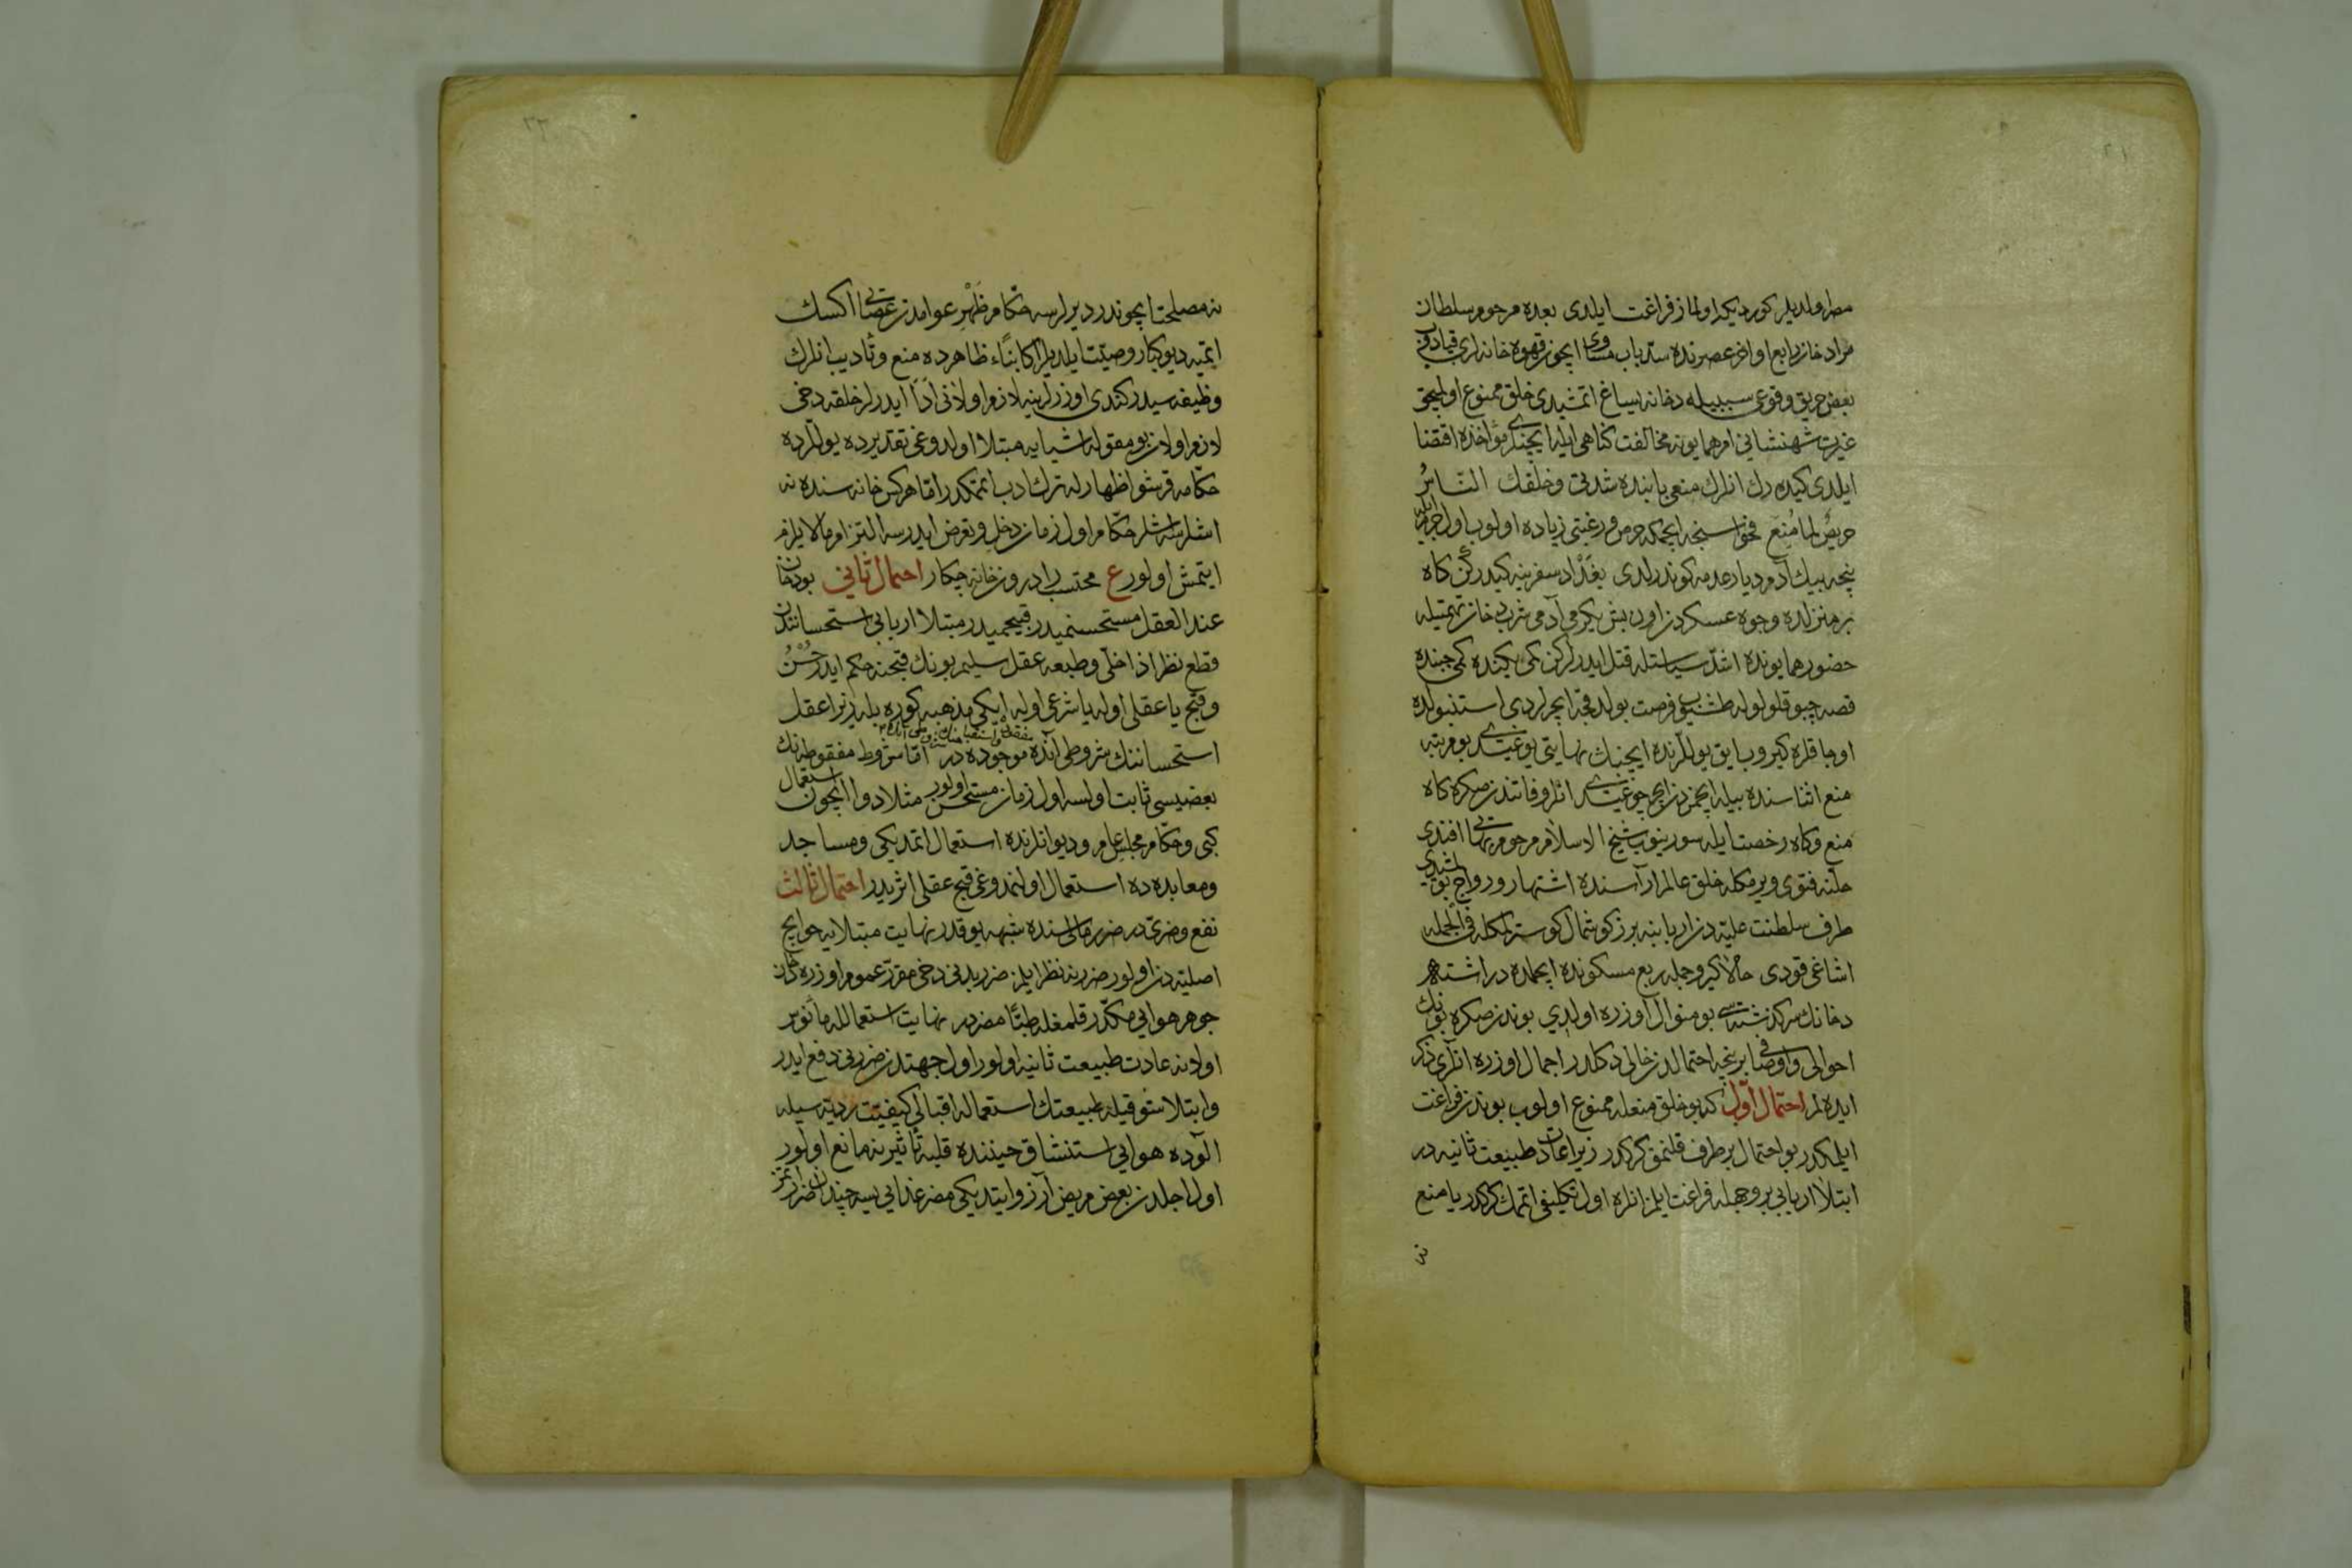 مصر اولديلر كورديكه اولماز فراغت ايلدى بعده مرحوم سلطان
مراد خان رابع اواخر عصرنده سد باب مساوى ايچون قهوه خانه لرى قپادوب
بعض حريق وقوعى سببيله دخانه يساغ اتمشيدى خلق ممنوع اولميجق
غيرت شهنشاهى امر همايونه مخالفت كناهى ايله ايچنلرى مؤاخذه اقتضا
ايلدى كيده رك انلرك منعى بابنده شدتى وخلقك الناسُ
حريصٌ لما مُنِعَ فحواسنجه ايچمكه حرص ورغبتى زياده اولوب اول جرم ايله
نيجه بيك آدم ديار عدمه كوندرلدى بغداد سفرينه كيدركن كاه
بر منزلده وجوه عسكردن اون بش يكرمى آدمى شرب دخان تهمتيله
حضور همايونده اشد سياستله قتل ايدرلركن كمى يكنده كمى جبنده
قصه چبوقلو لوله طشييوب فرصت بولدقجه ايچرلردى استنبولده
اوجاقلره كيروب ايق يوللرنده ايچنك نهايتى يوغيدى بو مرتبه
منع اثناسنده بيله ايچمزدن ايچر چوغيدى انلر وفاتندن صكره كاه
منع وكاه رخصت ايله سورينوب شيخ الاسلام مرحوم بهائى افندى
حلنه فتوى ويرمكله خلق عالم اراسنده اشتهار ورواج بولمشيدى
طرف سلطنت عليه دن اربابنه برز كوشمال كوسترلمكله فى الجمله
اشاغى قودى حالا كيرو جمله ربع مسكونده ايچمده در اشته
دخانك سركذشتسى بو منوال اوزره اولدى بوندن صكره بونك
احوالى واوصافى بر نيجه احتمالدن خالى دكلدر اجمال اوزره انلرى ذكر
ايده لم احتمال اول كه بو خلق منعله ممنوع اولوب بوندن فراغت
ايلمكدر بو احتمال بر طرف قلنمق كركدر زيرا عادت طبيعت ثانيه در
ابتلا اربابى بر وجهله فراغت ايلمز انلره اول تكليفى اتمك كركدر يا منع
نه مصلحت ايچوندر ديرلرسه حكام ظهرِ عوامدن عصايى اكسك
ايتميه ديو كبار وصيت ايلديلر اكا بناءً ظاهرده منع وتأديب انلرك
وظيفه سيدر كندى اوزرلرينه لازم اولانى ادا ايدرلر خلقه دخى
لازم اولان بو مقوله اشيايه مبتلا اولدوغى تقديرده يوللرده
حكامه قرشو اظهار له ترك ادب اتمكدر اما هركس خانه سنده نه
اشلرسه اشلر حكام اول زمان دخل وتعرض ايدرسه التزام ما لا يلزم
ايتمش اولور ع محتسب را درون خانه چكار احتمال ثانى بو دخان
عند العقل مستحسنميدر قبيحميدر مبتلا اربابى استحسانندن
قطع نظر اذاخلى وطبعه عقل سليم بونك قبحنه حكم ايدر حُسْنُ
وقبح يا عقلى اوله يا شرعى اوله ايكى مذهبه كوره بله زيرا عقل
استحساننك شروطى آنده موجوده در اما شروط مفقوطه نك
بعضيسى ثابت اولسه اول زمان مستحسن اولور مثلا دوا ايچون استعمال
كبى وحكام مجلس عام وديوانلرنده استعمال اتمديكى ومساجد
ومعابده ده استعمال اولنمدوغى قبح عقلى اثريدر احتمال ثالث
نفع وضرى در ضرر ماليسنده شبهه يوقدر نهايت مبتلايه حوايج
اصليه دن اولور ضررينه نظر ايلمز ضرر بدنى دخى مقرر عموم اوزره دخان
جوهر هوايى مكدر قلمغله طبًّا مضردر نهايت استعمالله مأنوس
اولانه عادت طبيعت ثانيه اولور اول جهتدن ضررنى دفع ايدر
وابتلا شوقيله طبيعتك استعماله اقبالى كيفيت رديه سيله
الوده هوايى استنشاق حيننده قلبه تأثيرينه مانع اولور
اول اجلدن بعض مريض آرزو ايتديكى مضر غدايى يسه چندان ضرر اتمز